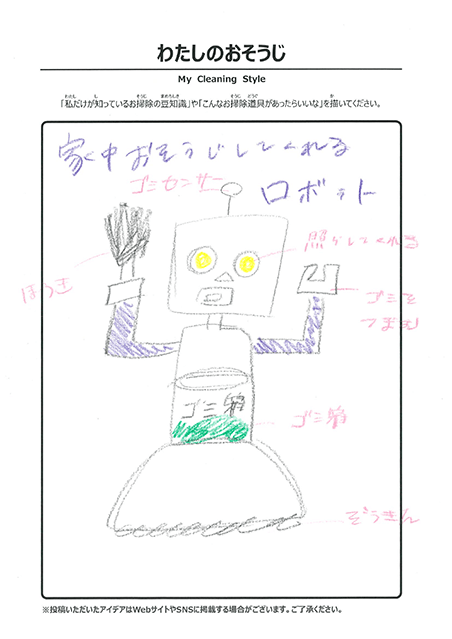 わたしのおそうじ
My Cleaning Style
「私だけが知っているお掃除の豆知識」や「こんなお掃除道具があったらいいな」を描いてください。
家中おそうじしてくれる
ロボット
ゴミセンサー
照らしてくれる
ほうき
ゴミを
つまむ
ゴミ箱
ゴミ箱
ぞうきん
※投稿いただいたアイデアはWebサイトやSNSに掲載する場合がございます。ご了承ください。